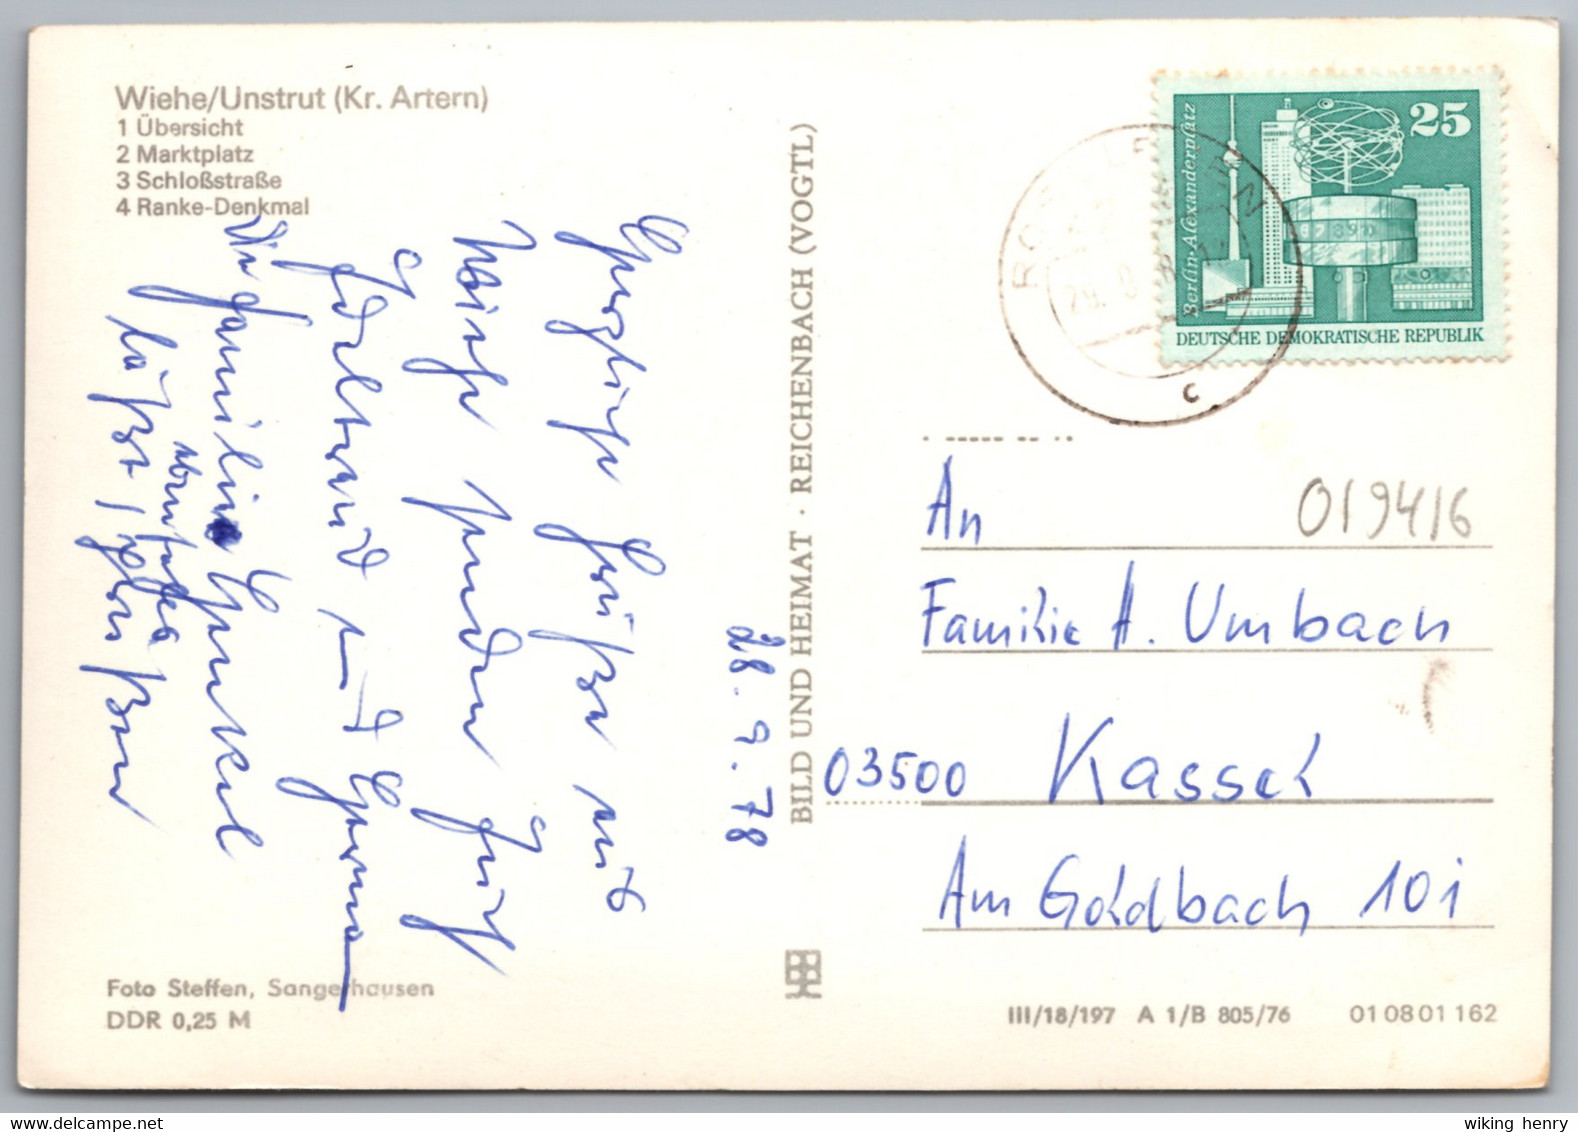 Wiehe/Unstrut (Kr. Artern)
1 Übersicht
2 Marktplatz
3 Schloßstraße
4 Ranke-Denkmal
28.9.78
Herzliche Grüße aus
Wiehe senden Euch
Edeltraud und
Die Familie Henkel
läßt grüßen
Foto Steffen, Sangerhausen
DDR 0,25 M
BILD UND HEIMAT · REICHENBACH (VOGTL)
Berlin·Alexanderplatz
25
DEUTSCHE DEMOKRATISCHE REPUBLIK
C
An
019416
Familie A. Umbach
03500 Kassel
Am Goldbach 10i
III/18/197 A 1/B 805/76 01 08 01 162
wiking henry